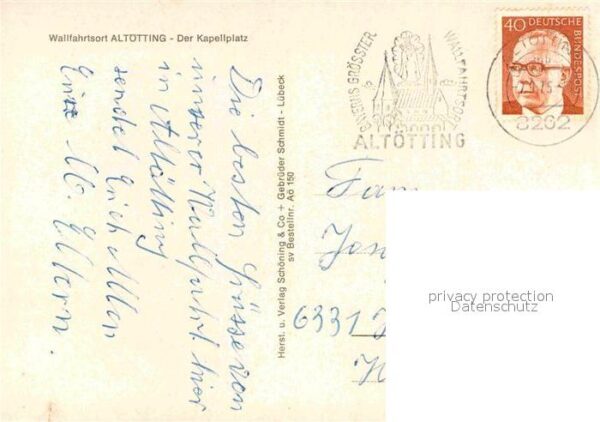 Wallfahrtsort ALTÖTTING - Der Kapellplatz
Die besten Grüsse von
unserer Wallfahrt hier
in Altötting
sendet Euch Allen
Eure Gb. Eltern.
Herst. u. Verlag Schöning & Co + Gebrüder Schmidt - Lübeck
sv Bestellnr. Aö 150
BAYERNS GRÖSSTER WALLFAHRTSORT
ALTÖTTING
40 DEUTSCHE BUNDESPOST
8262
Fam
6331
privacy protection
Datenschutz